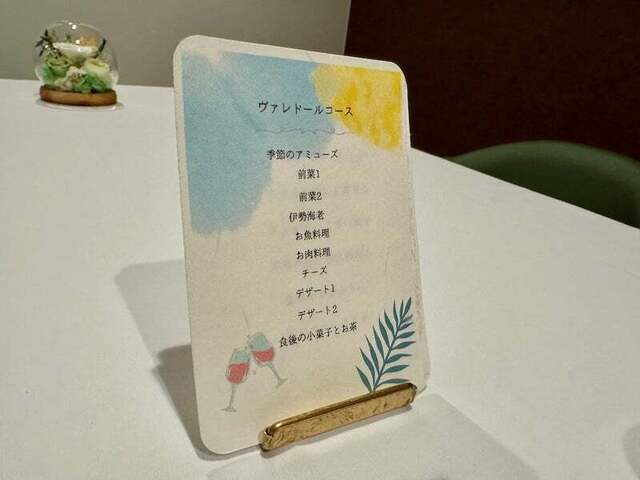 ヴァレドールコース
季節のアミューズ
前菜1
前菜2
伊勢海老
お魚料理
お肉料理
チーズ
デザート1
デザート2
食後の小菓子とお茶